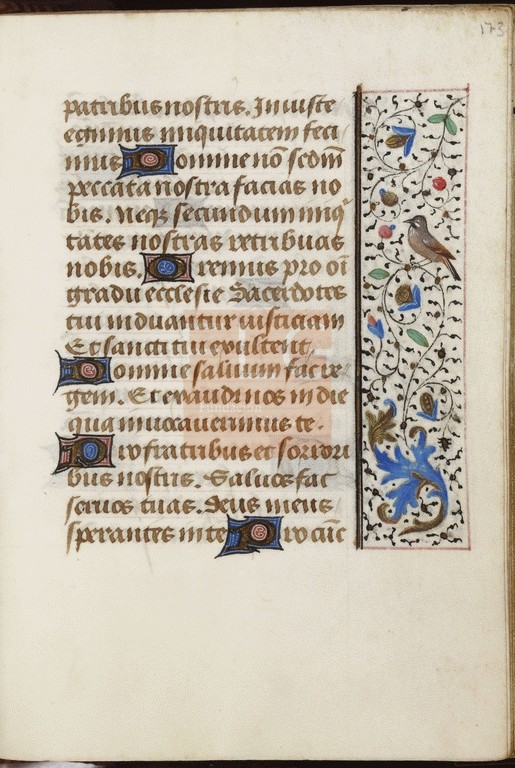 173
patribus nostris. Iniuste
egimus iniquitatem feci
mus Domine nō scdm̄
peccata nostra facias no
bis. Neqꝫ secundum iniq
tates nostras retribuas
nobis. Oremus pro oī
gradu ecclesie Sacerdotes
tui induantur iusticiam
Et sancti tui exultent.
Domine saluum fac re
gem. Et exaudi nos in die
qua inuocauerimus te.
Pro fratribus et sorori
bus nostris. Saluos fac
seruos tuos. Deus meus
sperantes in te Pro cūc